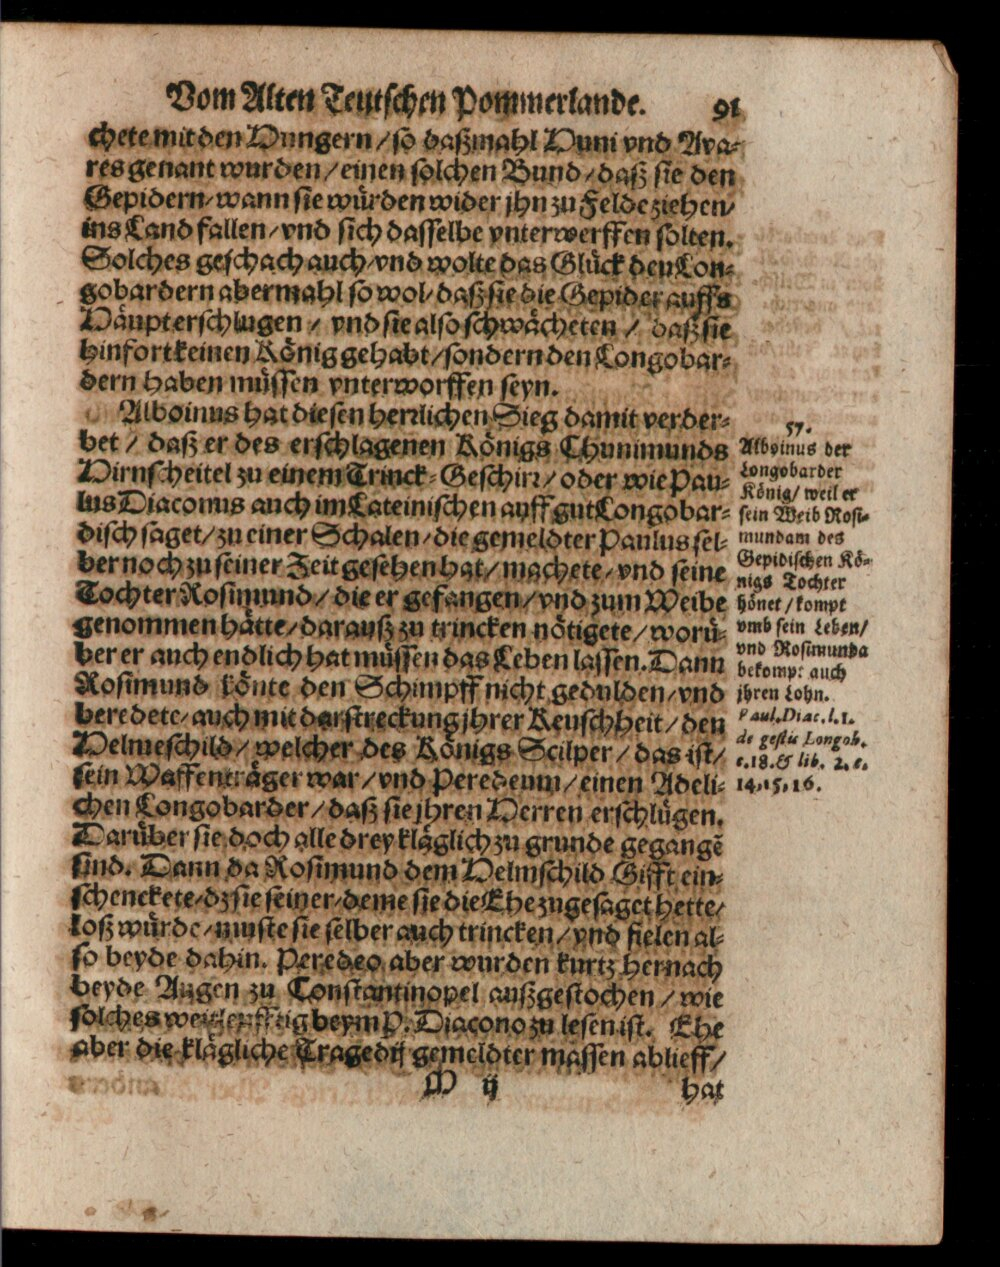 Vom Alten Teutschen Pommerlande. 91
chete mit den Hungern / so daßmahl Huni vnd Ava-
res genant wurden / einen solchen Bund / daß sie den
Gepidern / wann sie würden wider jhn zu Felde ziehen /
ins Land fallen / vnd sich dasselbe vnterwerffen solten.
Solches geschach auch / vnd wolte das Glück den Lon-
gobardern abermahl so wol / daß sie die Gepider auffs
Häupt erschlugen / vnd sie also schwächeten / daß sie
hinfort keinen König gehabt / sondern den Longobar-
dern haben müssen vnterworffen seyn.
Alboinus hat diesen herrlichen Sieg damit verder-
bet / daß er des erschlagenen Königs Chunimunds
Hirnscheitel zu einem Trinck-Geschirr / oder wie Pau-
lus Diaconus auch im Lateinischen auff gut Longobar-
disch saget / zu einer Schalen / die gemeldter Paulus sel-
ber noch zu seiner Zeit gesehen hat / machete / vnd seine
Tochter Rosimund / die er gefangen / vnd zum Weibe
genommen hätte / darauß zu trincken nötigete / worü-
ber er auch endlich hat müssen das Leben lassen. Dann
Rosimund könte den Schimpff nicht gedulden / vnd
beredete / auch mit darstreckung jhrer Keuschheit / den
Helmeschild / welcher des Königs Scilper / das ist /
sein Waffenträger war / vnd Peredeum / einen Adeli-
chen Longobarder / daß sie jhren Herren erschlügen.
Darüber sie doch alle drey kläglich zu grunde gegangē
sind. Dann da Rosimund dem Helmschild Gifft ein-
schenckete / dz sie seiner / deme sie die Ehe zugesaget hette /
loß würde / muste sie selber auch trincken / vnd fielen al-
so beyde dahin. Peredeo aber wurden kurtz hernach
beyde Augen zu Constantinopel außgestochen / wie
solches weitleufftig beym P. Diacono zu lesen ist. Ehe
aber die klägliche Tragedij gemeldter massen ablieff /
M ij hat
57.
Alboinus der
Longobarder
König / weil er
sein Weib Rosi-
mundam des
Gepidischen Kö-
nigs Tochter
hönet / kompt
vmb sein Leben /
vnd Rosimunda
bekompt auch
jhren Lohn.
Paul. Diac. l. 1.
de gestis Longob.
c. 18. & lib. 2. c.
14, 15, 16.